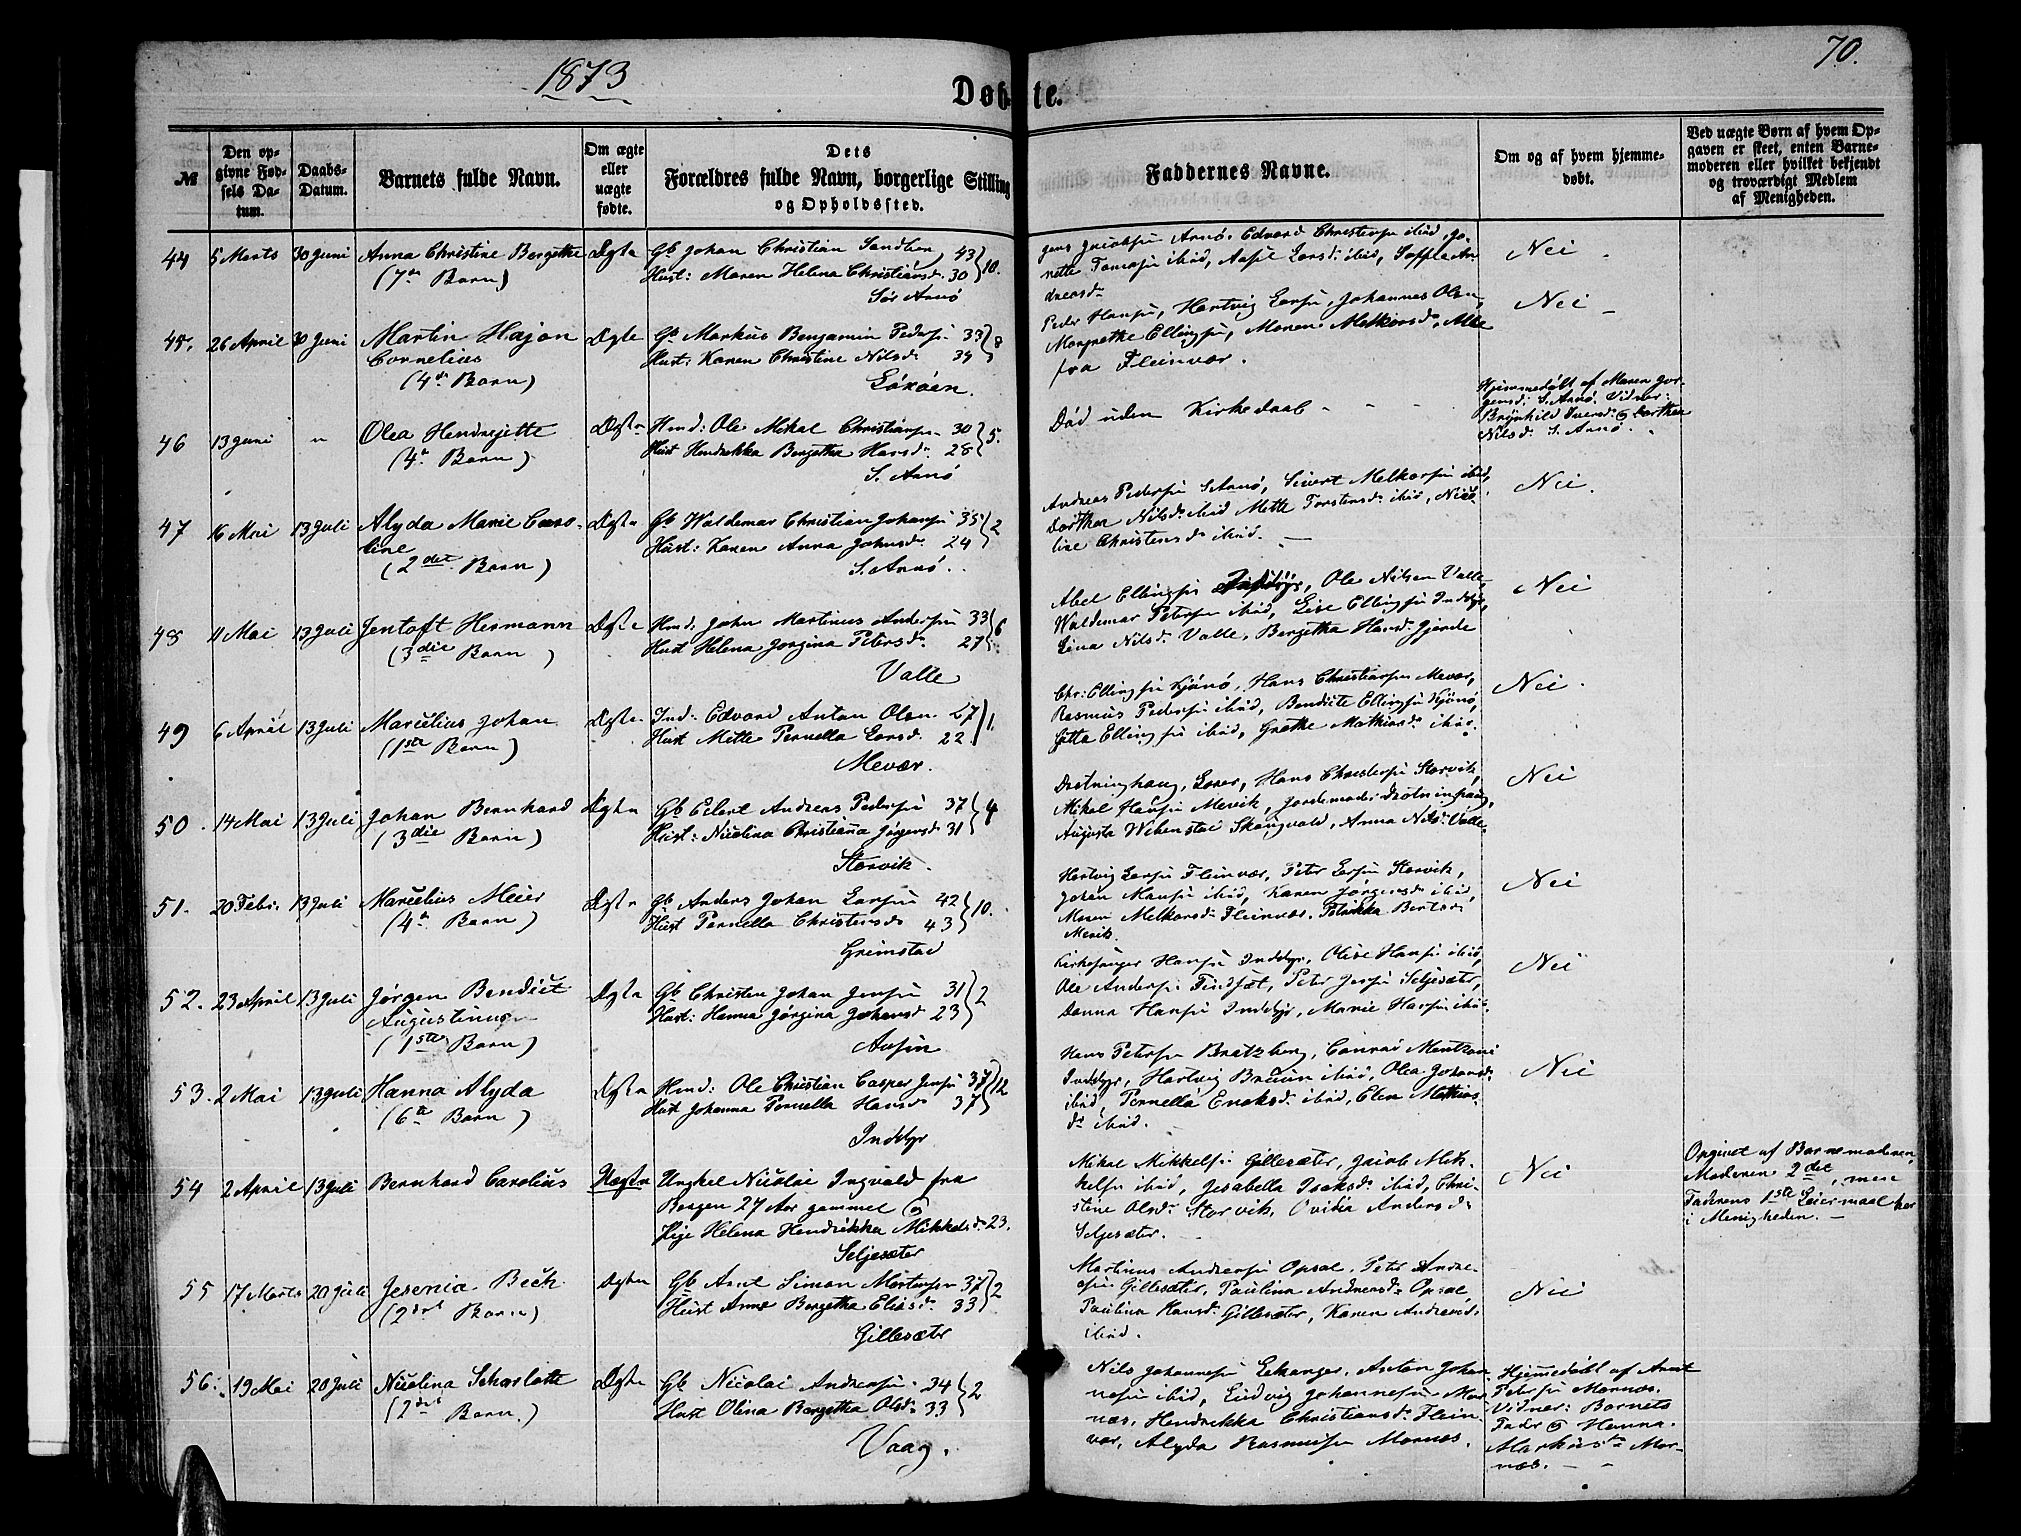 1873
70.
Døbte.
№
Den op-
givne Fød-
sels Da-
tum.
Daabs-
Datum.
Barnets fulde Navn.
Om ægte
eller
uægte
fødte.
Dets
Forældres fulde Navn, borgerlige Stilling
og Opholdssted.
Faddernes Navne.
Om og af hvem hjemme-
døbt.
Ved uægte Børn af hvem Op-
gaven er skeet, enten Barne-
moderen eller hvilket bekjendt
og troværdigt Medlem
af Menigheden.
44 5 Marts 30 Juni Anna Christine Bergethe Ægte Gb Johan Christian Sandberg 43
(7de Barn) Hust: Maren Helena Christiansd. 30 } 10.
Sør Arnø
Jens Jacobsen Arnø, Edvard Christensen ibid, Jo-
nette Tomasen ibid, Larsd. ibid, An-
dreasd.
Nei
45. 26 April 30 Juni Martin Hajon Ægte Gb Markus Benjamin Peders. 33 } 8
Cornelius Hust: Karen Christine Nilsd. 34
(4de Barn) Sørøen.
Peder Hansen, Hartvig Larsen, Johannes Olsen,
Margrethe Ellingsen, Maren Melkiorsd. Alle
fra Fleinvær.
Nei
46 13 Juni " Olea Hendrejette Ægte Hmd: Ole Mikal Christians. 30 } 5.
(4de Barn) Hust Hendrekka Bergetha Hansd. 28
S. Arnø
Død uden Kirkedaab - - -
Hjemmedøbt af Maren Jør-
gensd. S. Arnø. Vidner:
Brynhild Iversd. & Dorthea
Nilsd. S. Arnø.
47 16 Mai 13 Juli Alyda Marie Caro- Ægte Gb Waldemar Christian Johansen 35 } 2
line Hust: Karen Anna Johnsd. 24
(2det Barn) S. Arnø.
Andreas Pedersen S. Arnø, Sivert Melkorsen ibid,
Dorthea Nilsd. ibid Mette Torstensd. ibid, Nico-
line Christensd. ibid.
Nei.
48 11 Mai 13 Juli Jentoft Hermann Ægte Hmd. John Martinus Andersen 33 } 6
(3die Barn) Hust Helena Jorgina Petersd. 27
Valle
Abel Ellingsen Inddyr, Ole Nilsen Valle,
Waldemar Petersen ibid, Lise Ellingsen Inddyr,
Lina Nilsd. Valle, Bergetha Hansd. Gjerde
Nei
49 6 April 13 Juli Marcelius Johan Ægte Ind: Edvard Anton Olsen. 27 } 1.
(1ste Barn) Hust Mette Pernella Larsd. 22
Mevær.
Chr: Ellingsen Kjønø, Hans Christiansen Mevær,
Rasmus Pedersen ibid, Bendicte Ellingsen Kjønø,
Ellingsen ibid, Grethe Mathiasd. ibid.
Nei.
50. 14 Mai 13 Juli Johan Bernhard Ægte Gb Eilert Andreas Pedersen 37 } 4
(3die Barn) Hust: Nicolina Christiana Jørgensd. 31
Storvik.
Drotninghaug, Hans Christensen Storvik,
Mikal Hansen Mevik, Jordemoder Drotninghaug,
Augusta Skaugvald, Anna Nilsd. Valle.
Nei
51. 20 Febr. 13 Juli Marcelius Meier Ægte Gb Anders Johan Larsen 42 } 10.
(4de Barn) Hust Pernella Christensd. 43
Grimstad
Hartvig Larsen Fleinvær, Peter Larsen Storvik,
Johan Hansen ibid, Karen Jørgensd. ibid,
Maren Melkorsd. Fleinvær, Petrikka Berntsd.
Mevik.
Nei
52. 23 April 13 Juli Jørgen Bendict Ægte Gb Christen Johan Jensen 31 } 2
Augustinus Hust: Hanna Jørgina Johansd. 23
(1ste Barn)
Kirkesanger Hansen Inddyr, Olise Hansen ibid,
Ole Andersen Findsæt, Peter Jensen Seljesæter,
Danna Hansen Inddyr, Marie Hansen ibid.
Nei
53. 2 Mai 13 Juli Hanna Alyda Ægte Hmd: Ole Christian Casper Jensen 37 } 12
(6te Barn) Hust Johanna Pernella Hansd. 37
Inddyr
Hans Petersen Bratzberg, Conrad Mentzoni
Inddyr, Hartvig Bruun ibid, Olea Johansd.
ibid, Pernella Enoksd. ibid, Elen Mathias-
d. ibid.
Nei
54 2 April 13 Juli Bernhard Carolius Uægte Ungkel Nicolai Ingvald fra
Bergen 27 Aar gammel &
Pige Helena Hendrikka Mikkelsd. 23.
Seljesæter
Mikal Mikkelsen Gillesæter, Jacob Mik-
kelsen ibid, Jesabella Isaksd. ibid, Chri-
stine Olsd. Storvik, Ovidia Andersd.
Seljesæter.
Nei
Opgivet af Barnemoderen,
Moderens 2det, men
Faderens 1ste Leiermaal her
i Menigheden.
55 17 Marts 20 Juli Jesenia Beck Ægte Gb Arnt Simon Mortensen 37 } 2
(2det Barn) Hust Anne Bergetha Eliasd. 33
Gillesæter
Martinus Andersen Opsal, Peter Andre-
sen Gillesæter, Paulina Andreasd. Opsal,
Paulina Hansd. Gillesæter, Karen Andreasd.
ibid.
Nei
56. 19 Mai 20 Juli Nicolina Scharlotte Ægte Gb Nicolai Andersen 34 } 2
(2det Barn.) Hust Olina Bergetha Olsd. 33
Vaag.
Nils Johannesen Eehanger, Anton Johan-
nesen ibid, Ludvig Johannesen Mar-
næs, Hendrekka Christiansd. Flein-
vær, Alyda Rasmusen Marnæs.
Hjemmedøbt af Arnt
Petersen Marnæs.
Vidner: Barnets
Fader & Hanna
Markusd. Mar-
næs.